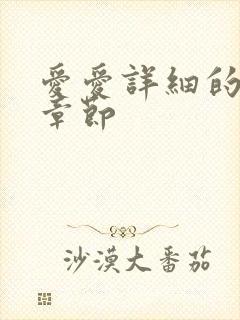 愛愛詳細的
章節
沙漠大番茄